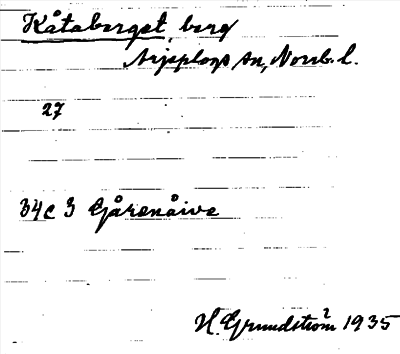 Kåtaberget, berg
Arjeplogs sn, Norrb. l.
27
34c 3 Gårenåive
H. Grundström 1935